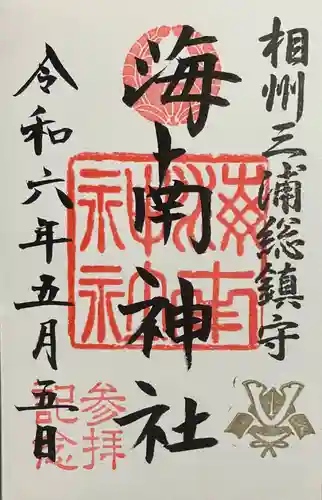 相州三浦総鎮守
海南神社
海南神社
令和六年五月五日
参拝
記念